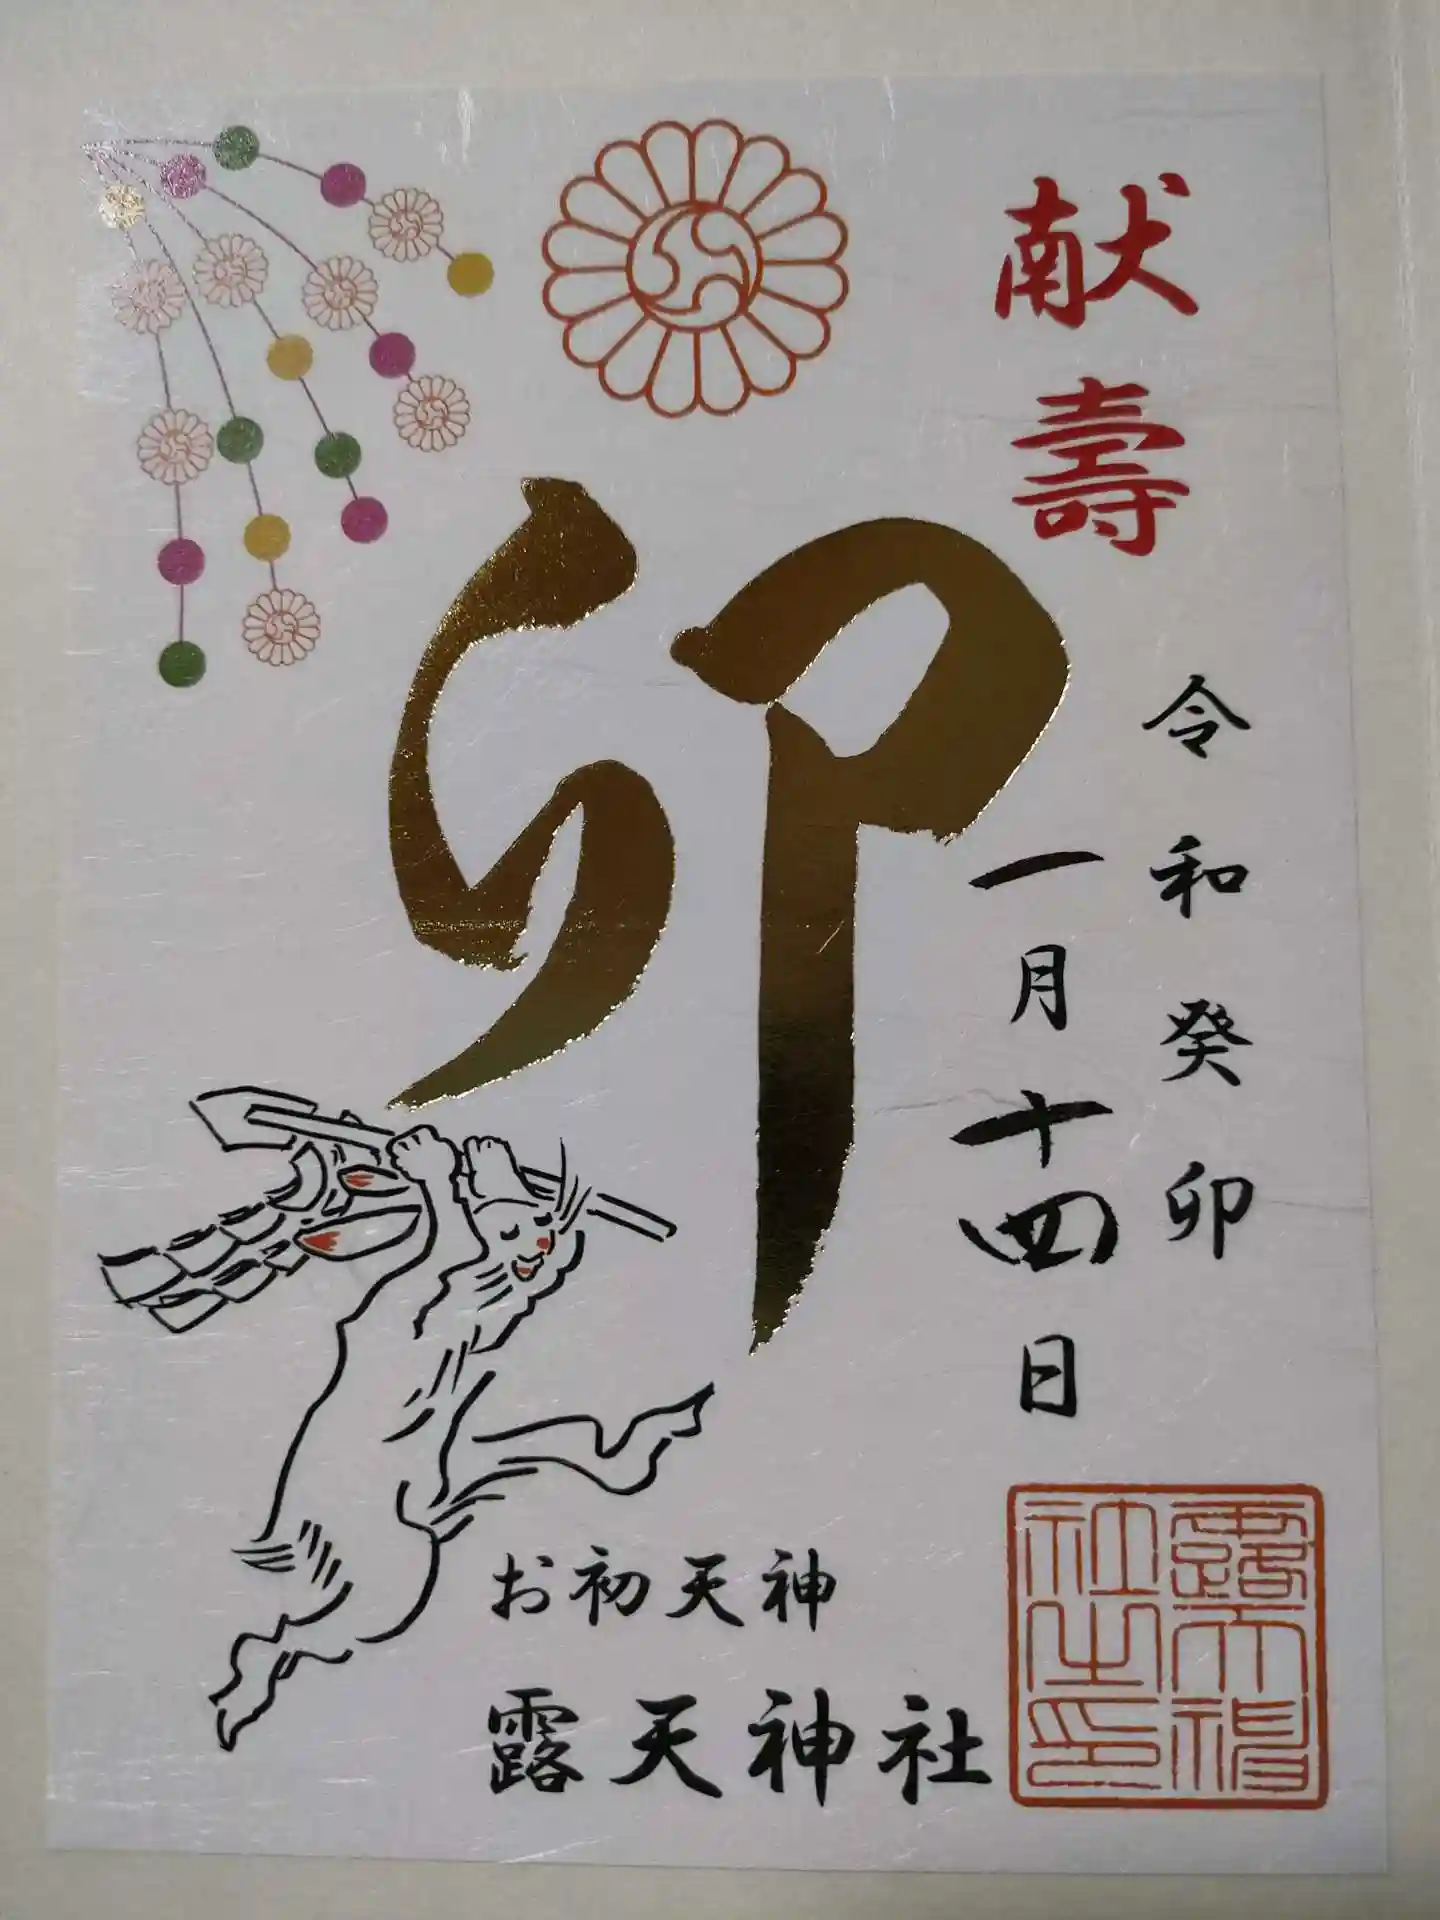 献壽
令和癸卯
一月十四日
卯
お初天神
露天神社
露天神社之印